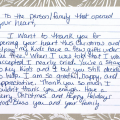 To the person/family that opened
your heart,
I want to thank you for
opening your heart this christmas and
"adopting" my kids have a
me. When I was told that I was
accepted I nearly cried. You're a
to my kids and I but you still
to help. I am so grateful, happy, and
appreciative. Thank you so much. I
couldn't thank you enough. Have a
Merry Christmas and Happy Holidays!
God Bless you and your family